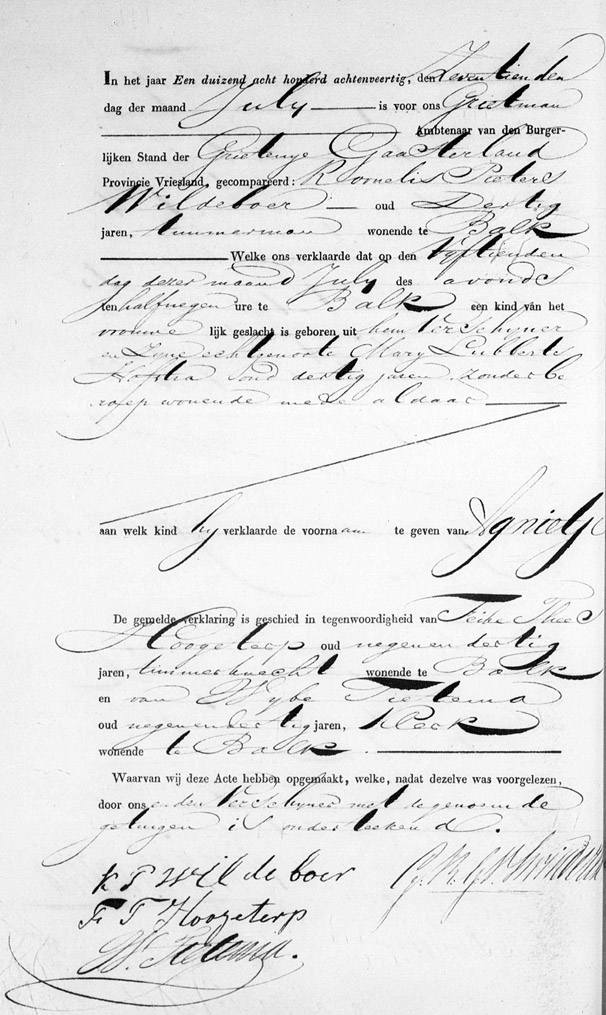 In het jaar Een duizend acht honderd achtenveertig, den Zeventienden
dag der maand July is voor ons Grietman
Ambtenaar van den Burger-
lijken Stand der Grietenye Gaasterland
Provincie Vriesland, gecompareerd: Kornelis Pieters
Wildeboer oud Dertig
jaren, timmerman wonende te Balk
Welke ons verklaarde dat op den Vyftienden
dag dezer maand July des avonds
ten halfnegen ure te Balk een kind van het
vrouwe lijk geslacht is geboren, uit hem Verschyner
en Zyne echtgenoote Mary Lubberts
Hofstra oud dertig jaren zonder be
roep wonende mede aldaar
aan welk kind hy verklaarde de voorna am te geven van Agnietje
De gemelde verklaring is geschied in tegenwoordigheid van Feike
Hoogeterp oud negenendertig
jaren, timmerknecht wonende te Balk
en van Wybe Tietema
oud negenendertig jaren, Klerk
wonende te Balk.
Waarvan wij deze Acte hebben opgemaakt, welke, nadat dezelve was voorgelezen,
door ons en den Verschyner met de genoemde
getuigen is onderteekend.
K P Wildeboer
F T Hoogeterp
W. Tietema.